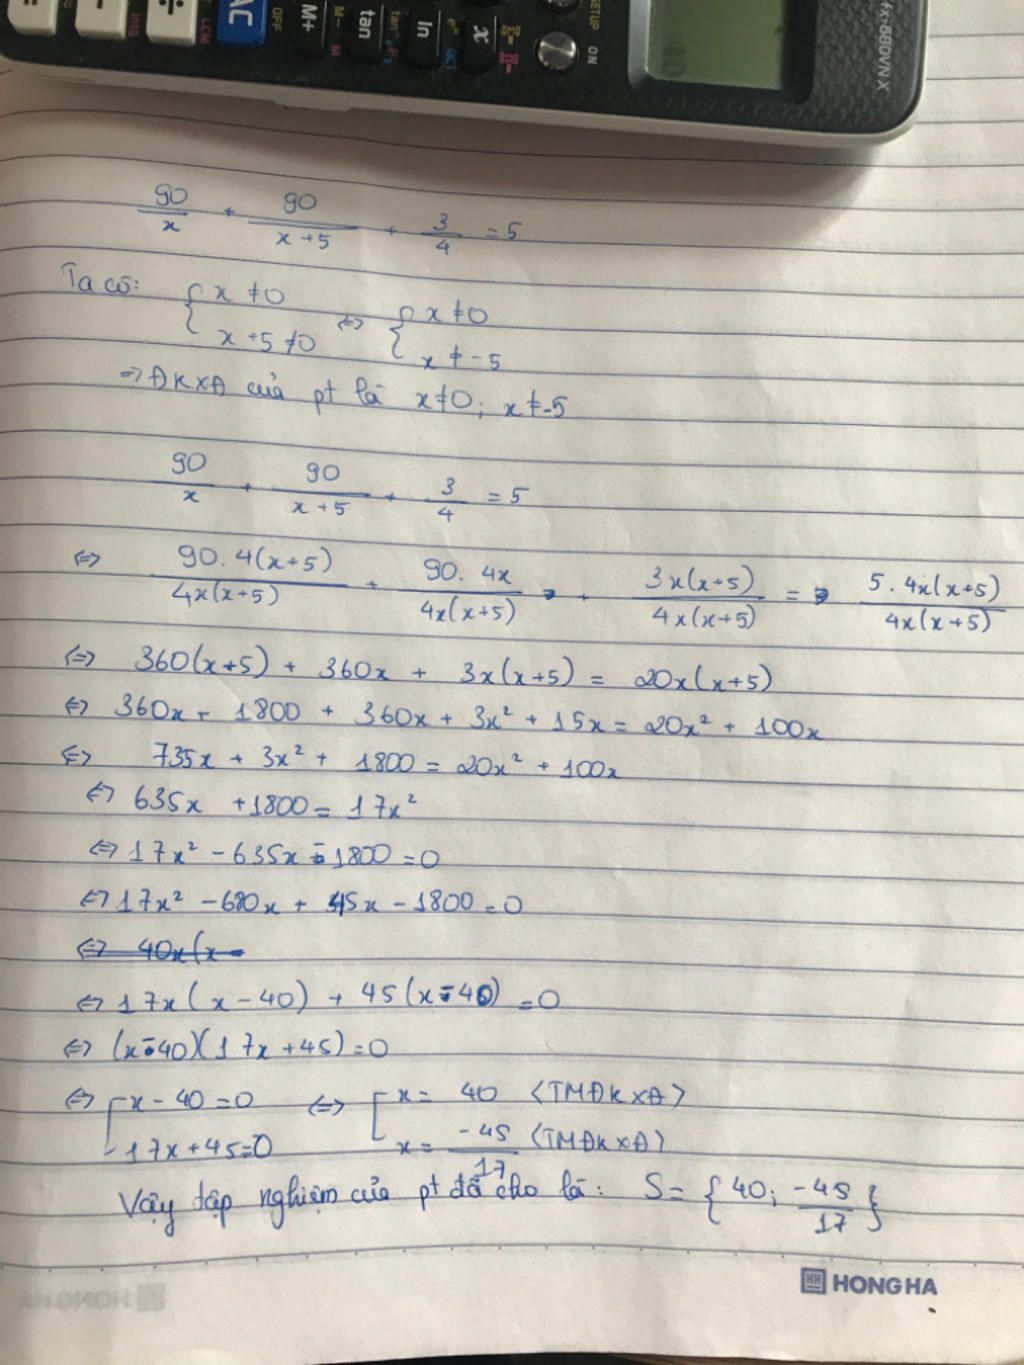 fx-580VN X
SETUP ON
OFF
AC
M+
M- M
tan
tan⁻¹
ln
x
LCM
90/x + 90/(x+5) + 3/4 = 5
Ta có: { x ≠ 0 ⇔ { x ≠ 0
x + 5 ≠ 0 x ≠ -5
⇒ ĐKXĐ của pt là x ≠ 0; x ≠ -5
90/x + 90/(x+5) + 3/4 = 5
⇔ 90.4(x+5)/4x(x+5) + 90.4x/4x(x+5) + 3x(x+5)/4x(x+5) = 5.4x(x+5)/4x(x+5)
⇔ 360(x+5) + 360x + 3x(x+5) = 20x(x+5)
⇔ 360x + 1800 + 360x + 3x² + 15x = 20x² + 100x
⇔ 735x + 3x² + 1800 = 20x² + 100x
⇔ 635x + 1800 = 17x²
⇔ 17x² - 635x - 1800 = 0
⇔ 17x² - 680x + 45x - 1800 = 0
⇔ 40x(x -
⇔ 17x(x - 40) + 45(x - 40) = 0
⇔ (x - 40)(17x + 45) = 0
⇔ [ x - 40 = 0 ⇔ [ x = 40 (TMĐKXĐ)
17x + 45 = 0 x = -45/17 (TMĐKXĐ)
Vậy tập nghiệm của pt đã cho là: S = {40; -45/17}
HH HONG HA